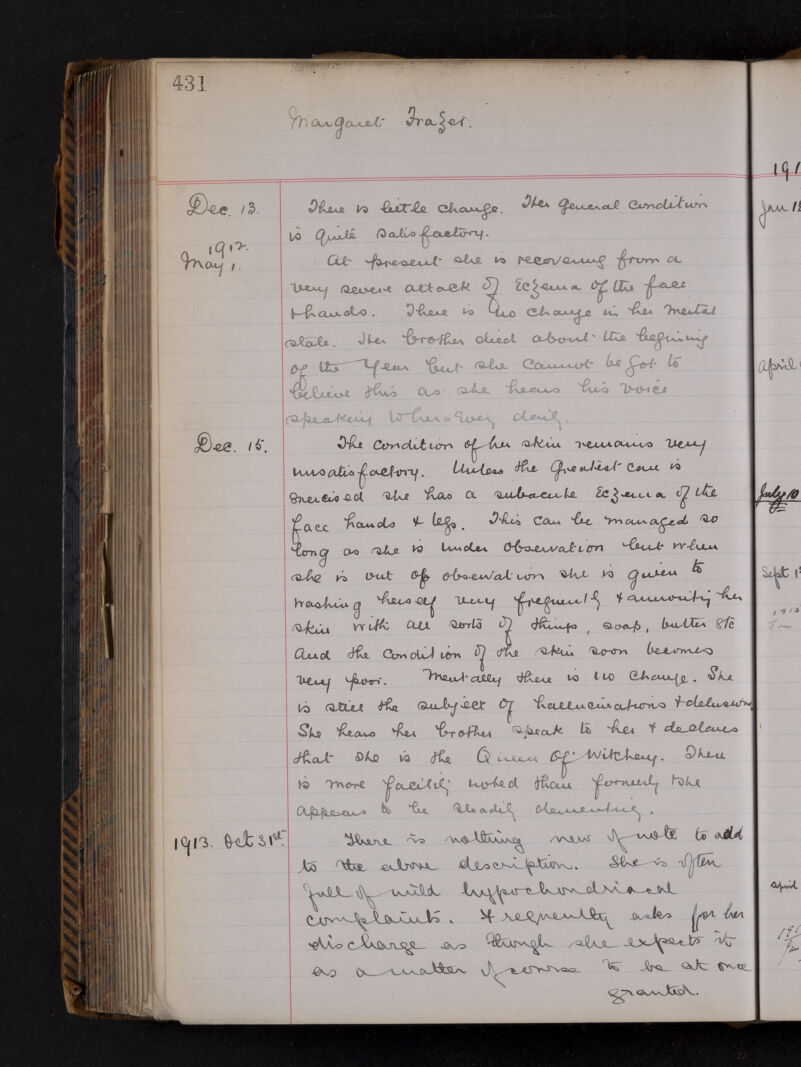 431
Margaret Frazer.
Dec. 13. There is little change. Her general condition
is quite satisfactory.
1912
May 1. At present she is recovering from a
very severe attack of Eczema of the face
& hands. There is no change in her mental
state. Her brother died about the begining
of the Year but she cannot be got to
believe this as she hears his voice
speaking to her every daily.
Dec. 15. The condition of her skin remains very
unsatisfactory. Unless the greatest care is
exercised she has a subacute Eczema of the
face hands & legs. This can be managed so
long as she is under observation but when
she is out of observation she is given to
washing herself very frequently & annointing her
skin with all sorts of things, soap, butter etc
and the condition of the skin soon becomes
very poor. Mentally there is no change. She
is still the subject of hallucinations & delusions
She hears her brother speak to her & declares
that she is the Queen of Witchery. There
is more facility noted than formerly & she
appears to be steadily dementing.
1913. Oct 31st. There is nothing new of note to add
to the above description. She is often
full of mild hypochondriacal
complaints. Frequently asks for her
discharge as though she expects it
as a matter of course to be at once
granted.
191
Jan 1
April
July 10
Sept 1
1913
April
191